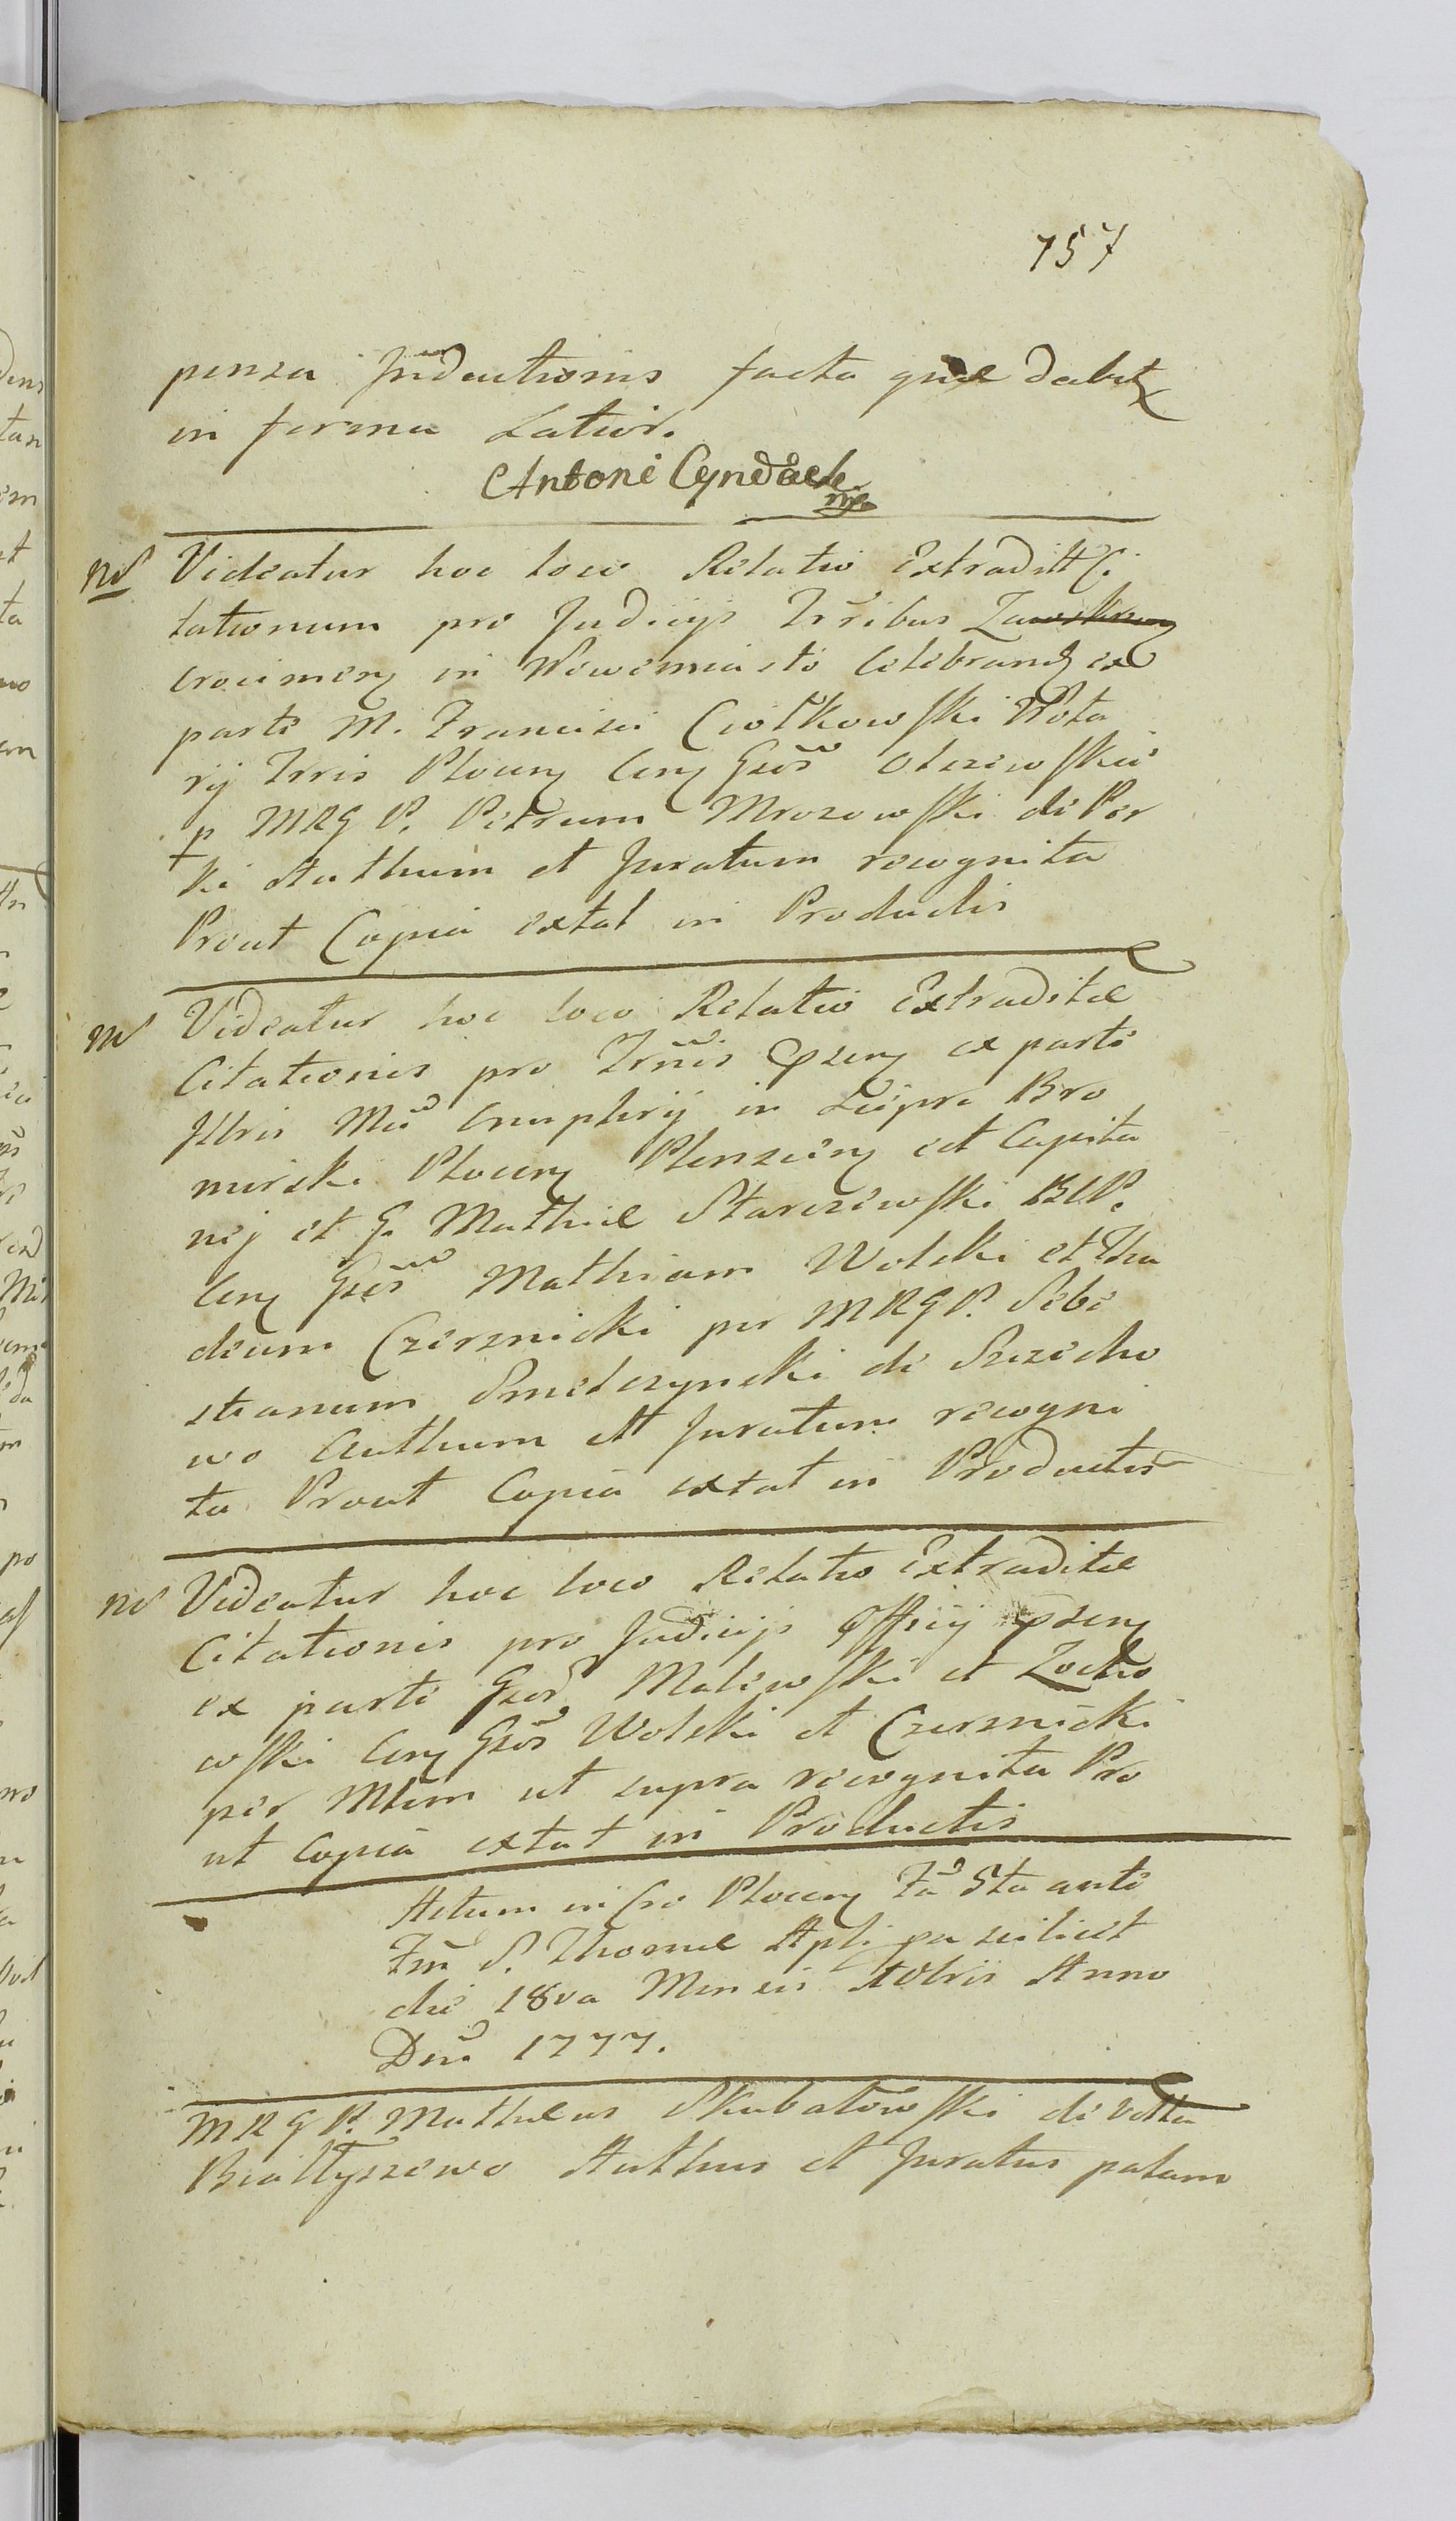 757
pensa Inductionis facta quae dabit
in forma Latiori.
Antoni Cyndack
Nd Videatur hoc loco Relatio Extradit Ci
tationum pro Judicijs Trribus Zawskrzen
crocimen in Nowemiasto Celebrand ex
parte M. Francisci Ciołkowski Nota
rij Trris Plocen Cen Gsos Olszewskie
p MRGP. Petrum Mrozowski de Per
ki Authum et Juratum recognita
Prout Copia extat in Productis
Nd Videatur hoc loco Relatio Extraditae
Citationis pro Trnis Pzen ex parte
Illris Mci Onuphrij in Lispe Bro
mirski Plocen Plenzien et Capita
nej et G. Mathiae Starczewski BUP.
Cen Gsos Mathiam Wolski et Tha
deum Czersnicki per MRGP. Sebe
stianum Smelczynski de Szczecho
wo Authum et Juratum recogni
ta Prout Copia extat in Productis
Nd Videatur hoc loco Relatio Extraditae
Citationis pro Judicijs Officij
ex parte Gsor Malewski et Zocho
wski Cen Gsos Wolski et Czersnicki
per Mlem ut supra recognita Pro
ut Copia extat in Productis
Actum in Cro Plocen Fa 5ta ante
Fm S. Thomae Apli ipsa scilicet
die 18va Mensis Xbris Anno
Dni 1777.
MRGP. Mathaeus Skubatowski de Villa
Białłyszewo Authus et Juratus palam